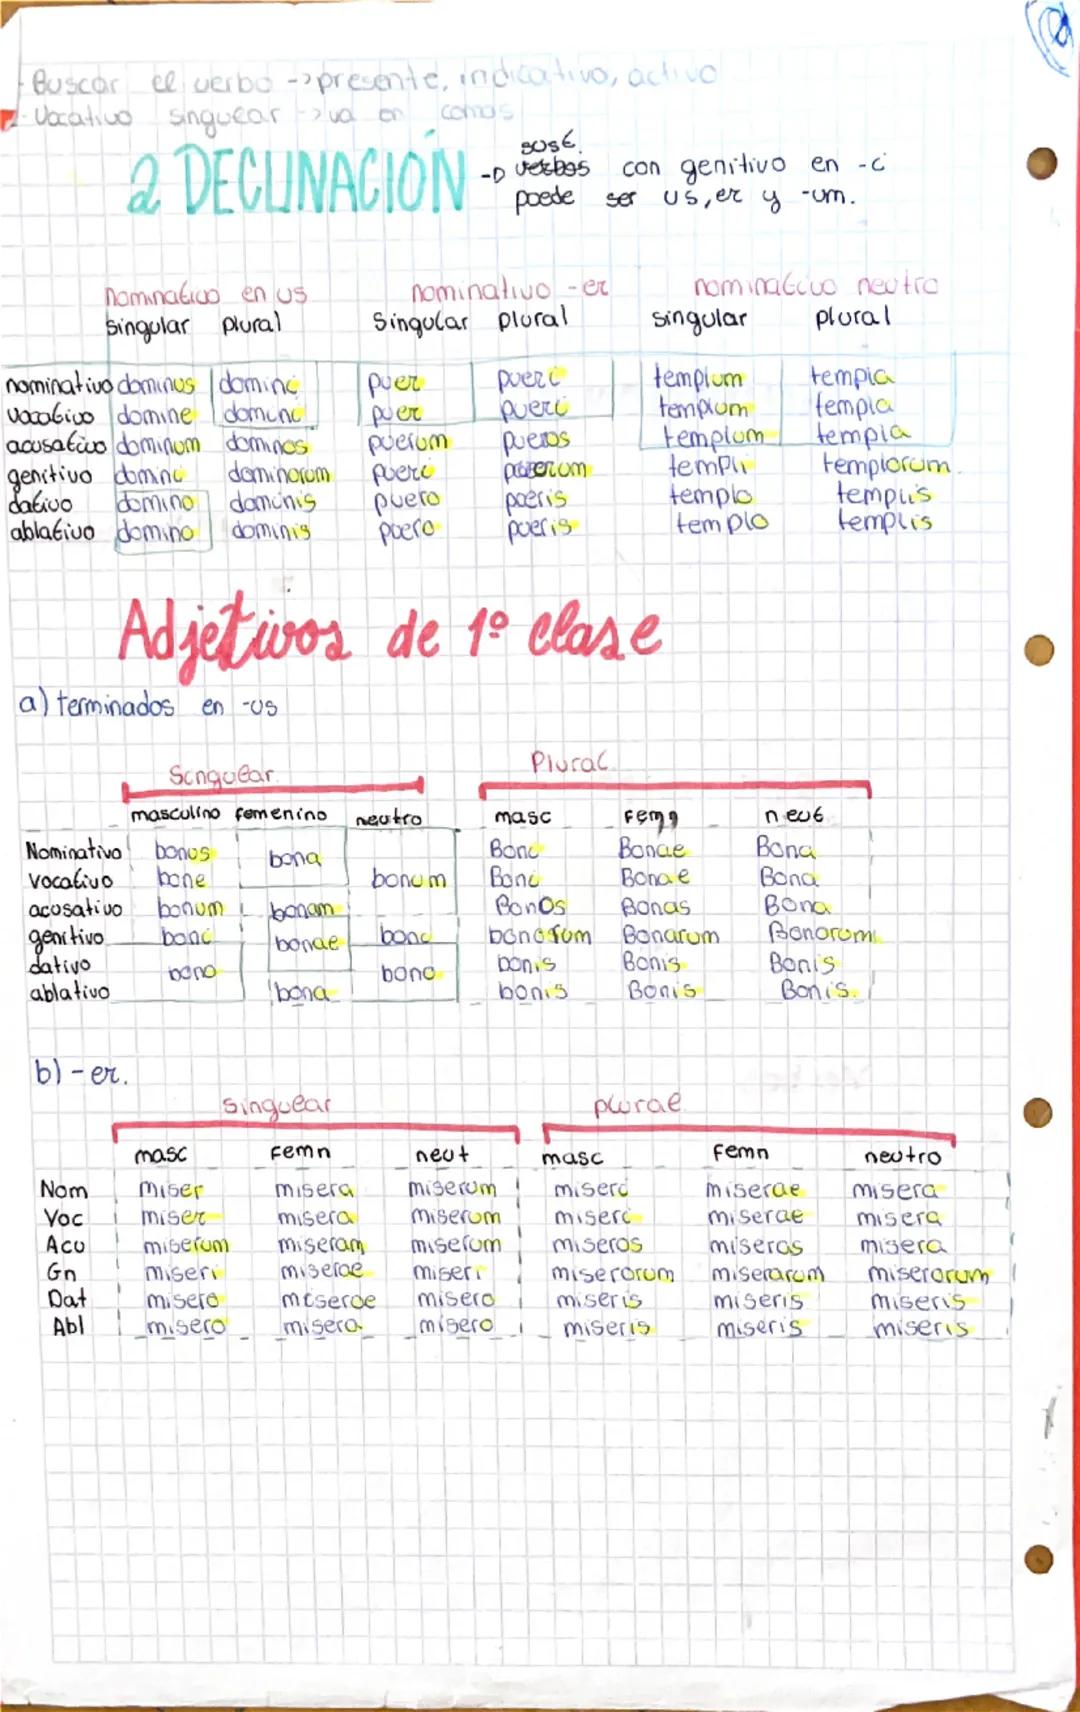 - Buscar el verbo -> presente, indicativo, activo
- Vocativo singular -> va en comas
2 DECLINACIÓN -D verbos sust. con genitivo en -i
puede ser us, er y -um.
nominativo en us nominativo -er nominativo neutro
singular plural singular plural singular plural
nominativo dominus domini puer pueri templum templa
vocativo domine domini puer pueri templum templa
acusativo dominum dominos puerum pueros templum templa
genitivo domini dominorum pueri puerorum templi templorum
dativo domino dominis puero pueris templo templis
ablativo domino dominis puero pueris templo templis
Adjetivos de 1º clase
a) terminados en -us
Singular. Plural
masculino femenino neutro masc Femn neut
Nominativo bonus bona bonum Boni Bonae Bona
vocativo bone Boni Bonae Bona
acusativo bonum bonam Bonos Bonas Bona
genitivo boni bonae boni bonorum Bonarum Bonorum
dativo bono bono bonis Bonis Bonis
ablativo bona bonis Bonis Bonis.
b) -er.
singular plural
masc Femn neut masc Femn neutro
Nom miser misera miserum miseri miserae misera
Voc miser misera miserum miseri miserae misera
Acu miserum miseram miserum miseros miseras misera
Gn miseri miserae miseri miserorum miserarum miserorum
Dat misero miserae misero miseris miseris miseris
Abl misero misera misero miseris miseris miseris